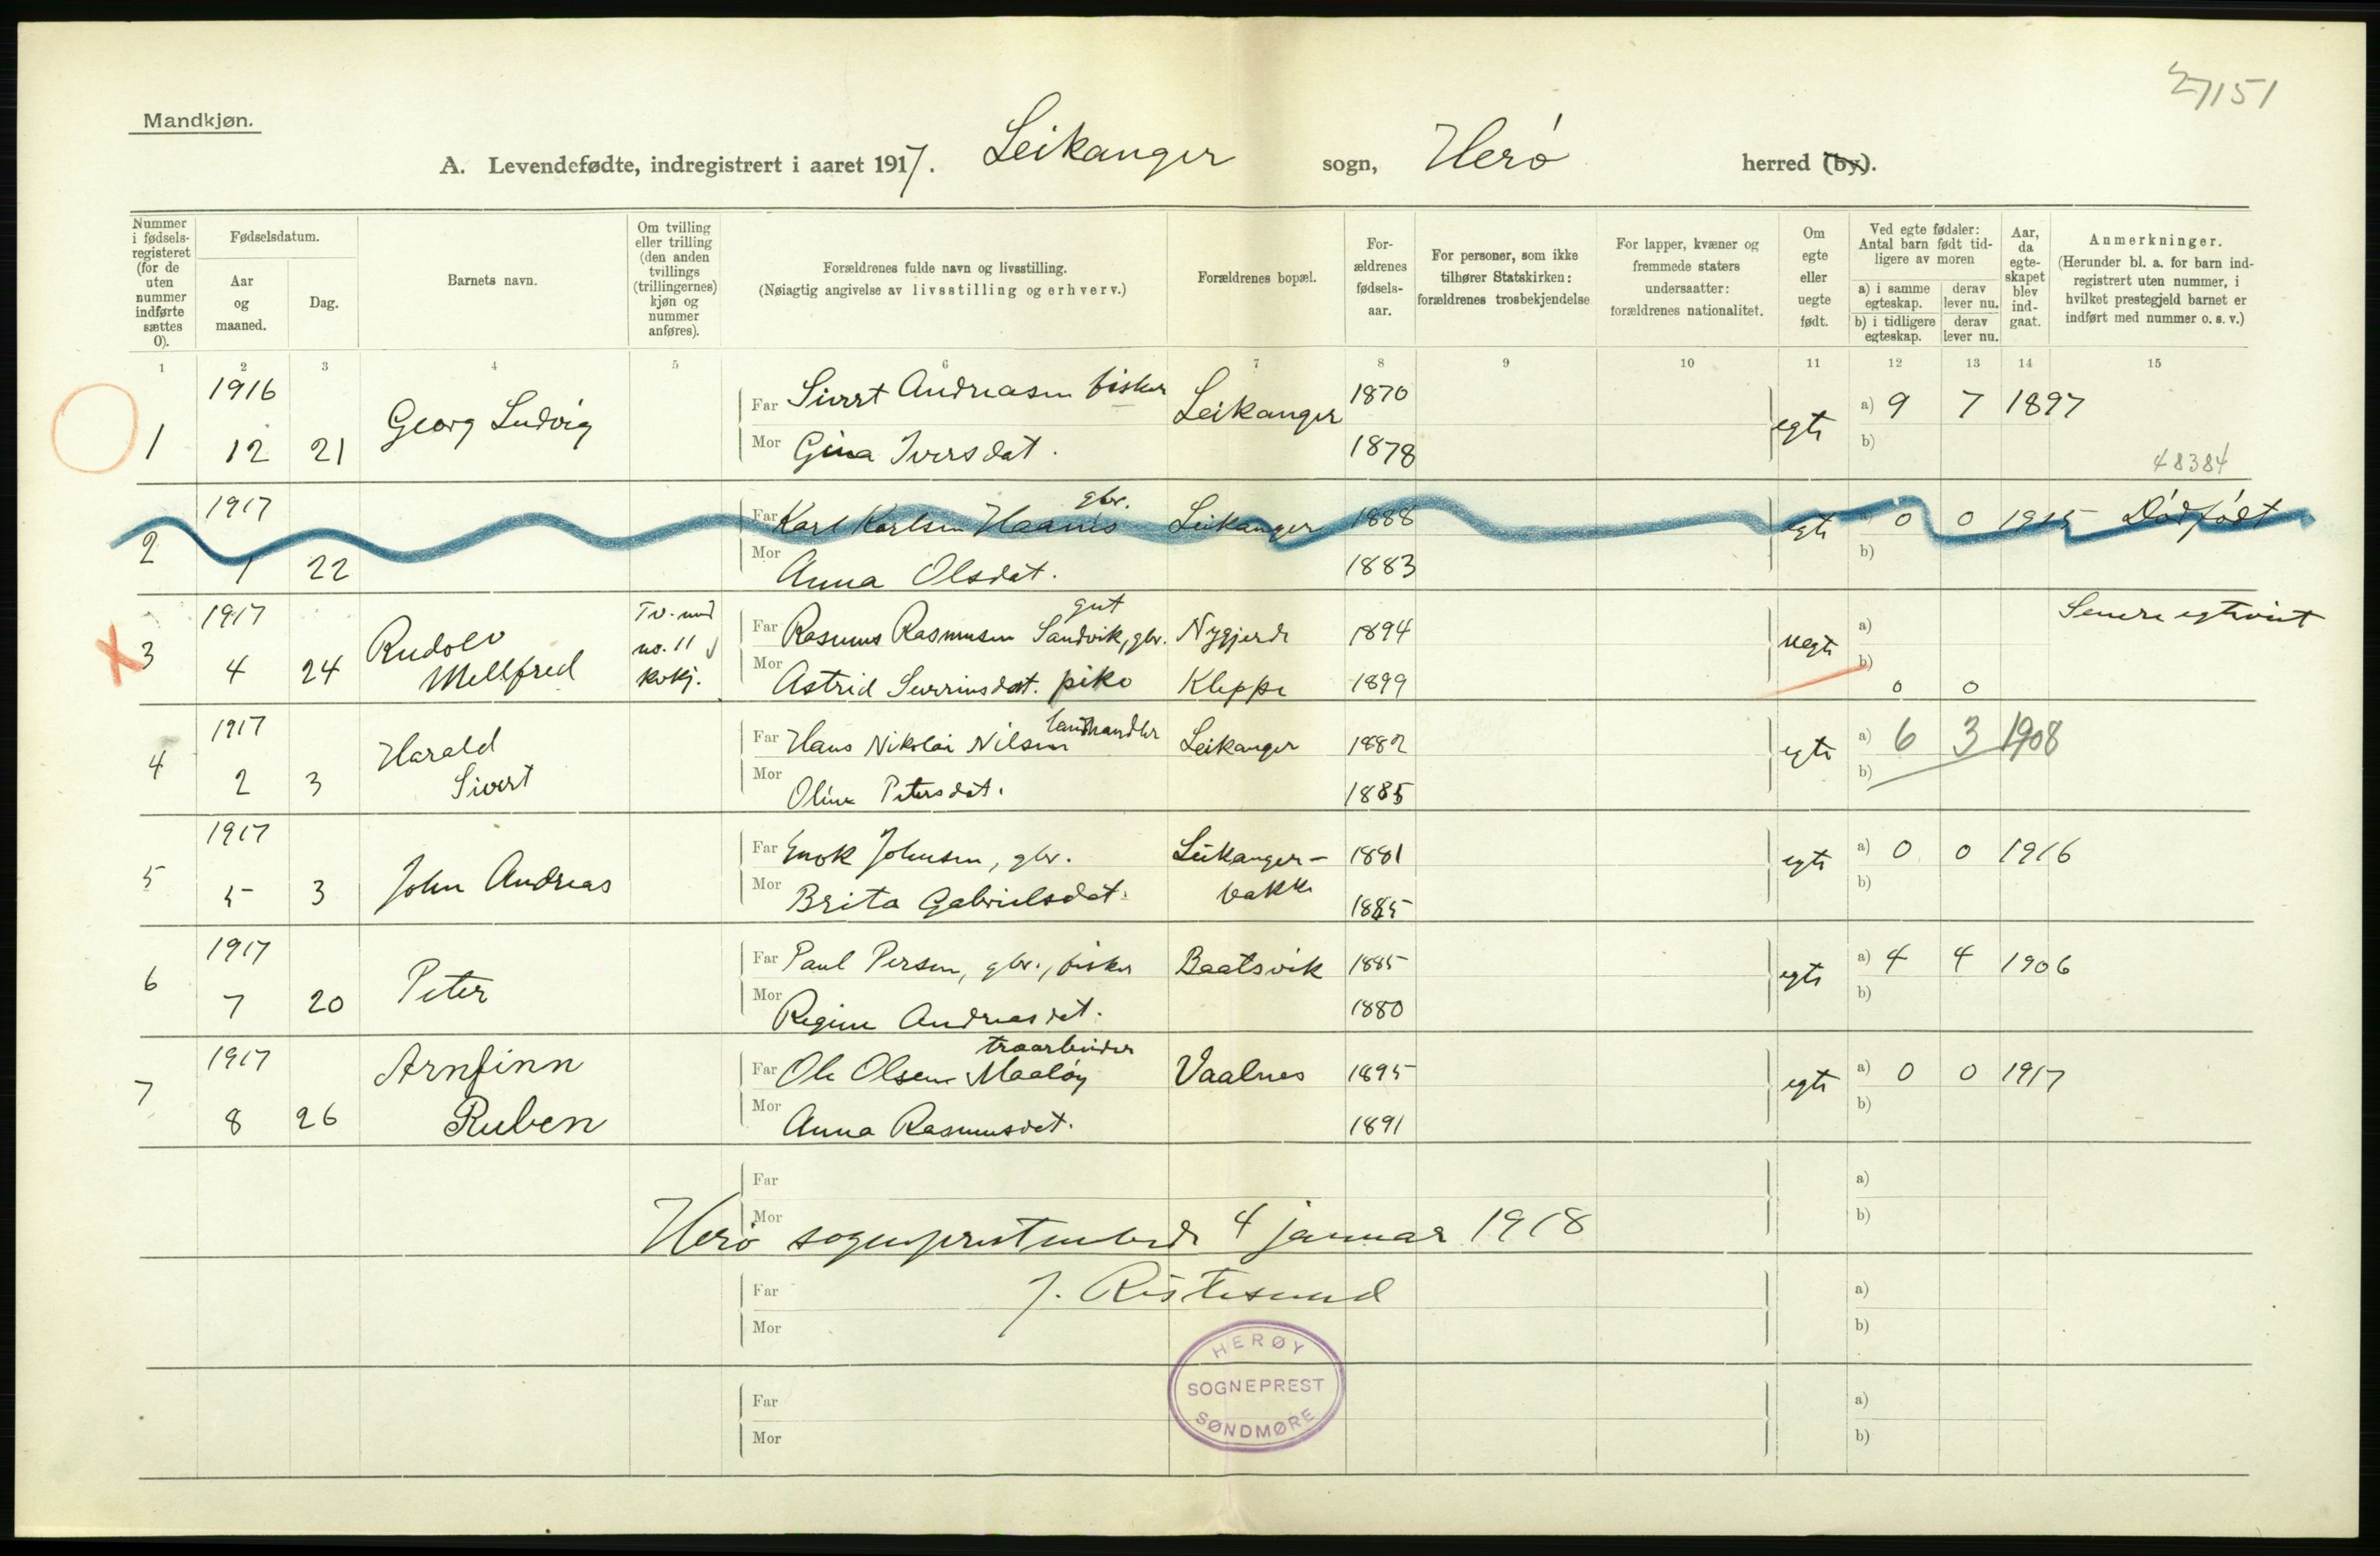 27151
Mandkjøn.
A. Levendefødte, indregistrert i aaret 1917. Leikanger sogn, Herø herred (by).
Nummer i fødsels-registeret (for de uten nummer indførte sættes 0).
Fødselsdatum.
Aar og maaned.
Dag.
Barnets navn.
Om tvilling eller trilling (den anden tvillings (trillingernes) kjøn og nummer anføres).
Forældrenes fulde navn og livsstilling.
(Nøiagtig angivelse av livsstilling og erhverv.)
Forældrenes bopæl.
For-ældrenes fødsels-aar.
For personer, som ikke tilhører Statskirken: forældrenes trosbekjendelse
For lapper, kvæner og fremmede staters undersaatter: forældrenes nationalitet.
Om egte eller uegte født.
Ved egte fødsler: Antal barn født tid-ligere av moren
a) i samme egteskap. derav lever nu.
b) i tidligere egteskap. derav lever nu.
Aar, da egte-skapet blev ind-gaat.
Anmerkninger.
(Herunder bl. a. for barn ind-registrert uten nummer, i hvilket prestegjeld barnet er indført med nummer o. s. v.)
1 2 3 4 5 6 7 8 9 10 11 12 13 14 15
1916 Far Sivert Andreasen fisker Leikanger 1870 egte a) 9 7 1897
1 12 21 Georg Ludvig Mor Gina Iversdat. 1878 b)
48384
1917 Far Karl Karlsen Haanes gbr. Leikanger 1888 egte a) 0 0 1915 Dødfødt
2 1 22 Mor Anna Olsdat. 1883 b)
1917 Tv. med Far Rasmus Rasmusen Sandvik, gbr. gut Nygjerde 1894 uegte a) Senere egteviet
3 4 24 Rudolv Mellfred no. 11 kvkj. Mor Astrid Severinsdat. pike Kleppe 1899 b) 0 0
1917 Far Hans Nikolai Nilsen landhandler Leikanger 1882 egte a) 6 3 1908
4 2 3 Harald Sivert Mor Oline Petersdat. 1885 b)
1917 Far Enok Johnsen, gbr. Leikanger- 1881 egte a) 0 0 1916
5 5 3 John Andreas Mor Brita Gabrielsdat. bakke 1885 b)
1917 Far Paul Persen, gbr., fisker Baatsvik 1885 egte a) 4 4 1906
6 7 20 Peter Mor Regine Andreasdat. 1880 b)
1917 Far Ole Olsen Maaløy træarbeider Vaalnes 1895 egte a) 0 0 1917
7 8 26 Arnfinn Ruben Mor Anna Rasmusdat. 1891 b)
Far a)
Mor b)
Herø sogneprestembede 4 januar 1918
Far a)
J. Ristesund
Mor b)
HERØY
SOGNEPREST
SØNDMØRE
Far a)
Mor b)